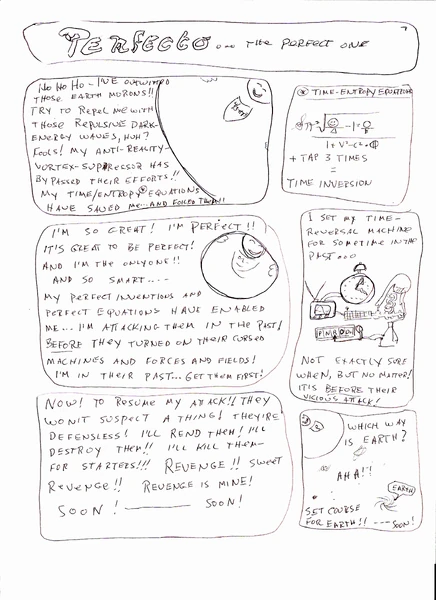 PERFECTO... THE PERFECT ONE
HO HO HO - I'VE OUTWITTED
THOSE EARTH MORONS!!
TRY TO REPEL ME WITH
THOSE REPULSIVE DARK-
ENERGY WAVES, HUH?
FOOLS! MY ANTI-REALITY-
VORTEX-SUPPRESSOR HAS
BYPASSED THEIR EFFORTS!!
MY TIME/ENTROPY EQUATIONS
HAVE SAVED ME...AND FOILED THEM!
* TIME-ENTROPY EQUATIONS
+ TAP 3 TIMES
=
TIME INVERSION
I'M SO GREAT! I'M PERFECT!!
IT'S GREAT TO BE PERFECT!
AND I'M THE ONLY ONE!!
AND SO SMART....
MY PERFECT INVENTIONS AND
PERFECT EQUATIONS HAVE ENABLED
ME... I'M ATTACKING THEM IN THE PAST!
BEFORE THEY TURNED ON THEIR CURSED
MACHINES AND FORCES AND FIELDS!
I'M IN THEIR PAST... GET THEM FIRST!
I SET MY TIME-
REVERSAL MACHINE
FOR SOMETIME IN THE
PAST...
NOT EXACTLY SURE
WHEN, BUT NO MATTER!
IT IS BEFORE THEIR
VICIOUS ATTACK!
NOW! TO RESUME MY ATTACK!! THEY
WON'T SUSPECT A THING! THEY'RE
DEFENSLESS! I'LL REND THEM! I'LL
DESTROY THEM!! I'LL KILL THEM-
FOR STARTERS!!! REVENGE!! SWEET
REVENGE!! REVENGE IS MINE!
SOON! ———— SOON!
WHICH WAY
IS EARTH?
AHA!!
EARTH
SET COURSE
FOR EARTH!! ---SOON!